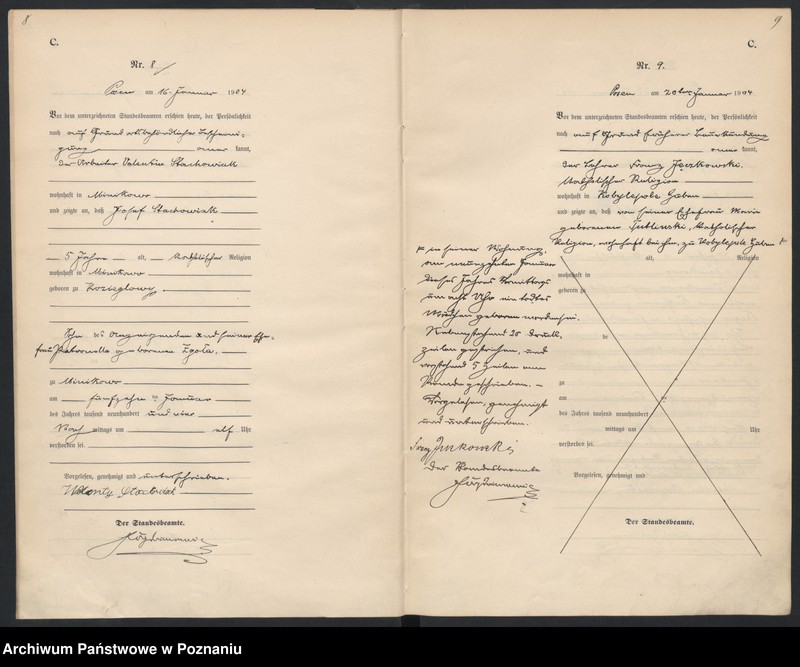 8
C.
Nr. 8
Posen am 16. Januar 1904
Vor dem unterzeichneten Standesbeamten erschien heute, der Persönlichkeit
nach auf Grund ortsbehördlicher Bescheini-
gung kannt,
der Arbeiter Valentin Stachowiak
wohnhaft in Minikowo
und zeigte an, daß Josef Stachowiak
5 Jahre alt, katholischer Religion
wohnhaft in Minikowo
geboren zu Kozieglowy
Sohn des Anzeigenden und seiner Ehe-
frau Petronella geborenen Zgoła,
zu Minikowo
am fünfzehnten Januar
des Jahres tausend neunhundert und vier
Vor mittags um elf Uhr
verstorben sei.
Vorgelesen, genehmigt und unterschrieben.
Walenty Stachwiak
Der Standesbeamte.
9
C.
Nr. 9.
Posen am 20ten Januar 1904
Vor dem unterzeichneten Standesbeamten erschien heute, der Persönlichkeit
nach auf Grund früherer Beurkundung
kannt,
der Lehrer Franz
katholischer Religion
wohnhaft in Kobylepole Gutsbez.
und zeigte an, daß von seiner Ehefrau Maria
geborenen katholischer
Religion, wohnhaft bei ihm, zu Kobylepole
in seiner Wohnung
am neunzehnten Januar
dieses Jahres Vormittags
um acht Uhr ein todtes
Mädchen geboren worden sei.
Nebenstehend Druck-
zeilen gestrichen, und
vorstehend 5 Zeilen am
Rande geschrieben. –
Vorgelesen, genehmigt
und unterschrieben.
Der Standesbeamte
alt, Religion
wohnhaft in
geboren zu
de
zu
am
des Jahres tausend neunhundert
mittags um Uhr
verstorben sei.
Vorgelesen, genehmigt und
Der Standesbeamte.
Archiwum Państwowe w Poznaniu